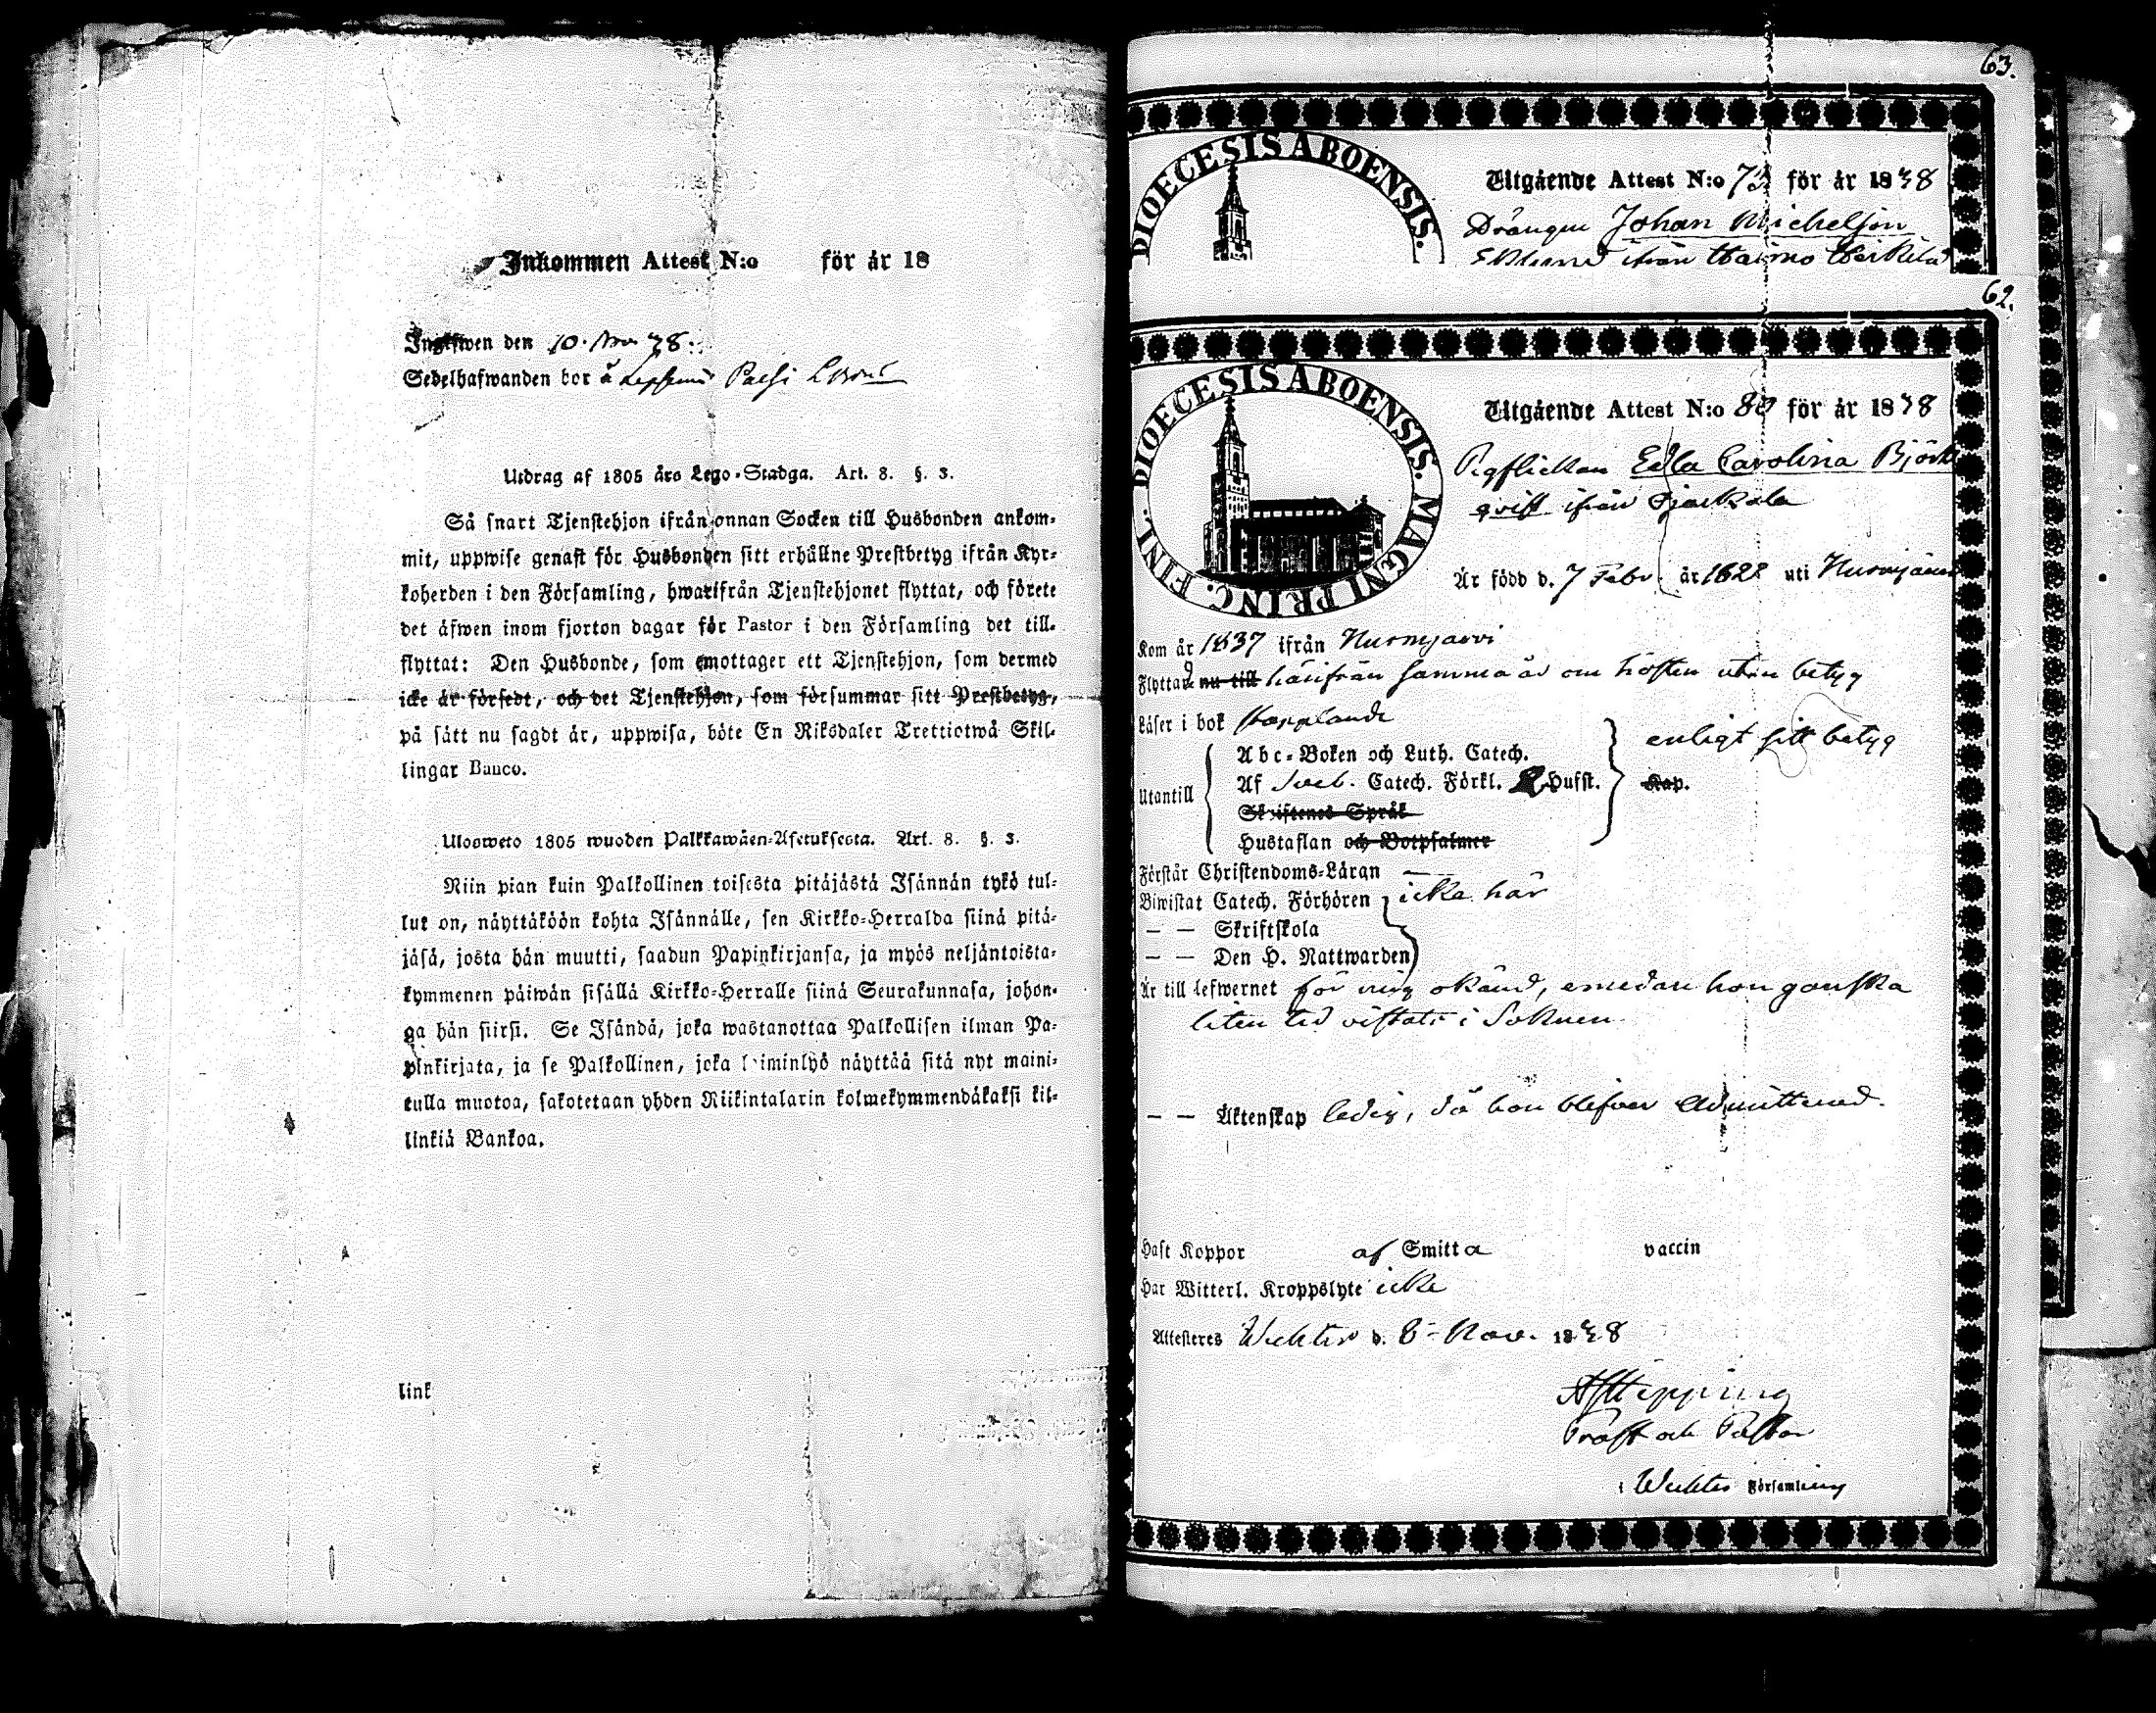 Inkommen Attest N:o för år 18
Ingifwen den 10. Nov 38.
Sedelhafwanden bor å Lepsemä
Utdrag af 1805 års Lego-Stadga. Art. 8. §. 3.
Så snart Tjenstehjon ifrån annan Socken till Husbonden ankom-
mit, uppwise genast för Husbonden sitt erhållne Prestbetyg ifrån Kyr-
koherden i den Församling, hwarifrån Tjenstehjonet flyttat, och förete
det äfwen inom fjorton dagar för Pastor i den Församling det till-
flyttat: Den Husbonde, som emottager ett Tjenstehjon, som dermed
icke är försedt, och det Tjenstehjon, som försummar sitt Prestbetyg,
på sätt nu sagdt är, uppwisa, böte En Riksdaler Trettiotwå Skil-
lingar Banco.
Ulosweto 1805 wuoden Palkkawäen-Asetuksesta. Art. 8. §. 3.
Niin pian kuin Palkollinen toisesta pitäjästä Isännän tykö tul-
lut on, näyttäköön kohta Isännälle, sen Kirkko-Herralda siinä pitä-
jäsä, josta hän muutti, saadun Papinkirjansa, ja myös neljäntoista-
kymmenen päiwän sisällä Kirkko-Herralle siinä Seurakunnasa, johon-
ga hän siirsi. Se Isändä, joka wastanottaa Palkollisen ilman Pa-
pinkirjata, ja se Palkollinen, joka laiminlyö näyttää sitä nyt maini-
tulla muotoa, sakotetaan yhden Riikintalarin kolmekymmendäkaksi kil-
linkiä Bankoa.
link
63.
DIOECESIS ABOENSIS.
Utgående Attest N:o för år 1838
Drängen Johan Michelsson
ifrån
62.
DIOECESIS ABOENSIS. MAGNI PRINC. FINL.
Utgående Attest N:o 80 för år 1838
Pigflickan Edla Carolina Björk
qvist ifrån Ojackala
Är född d. 7 Febr. år 1822 uti Nurmijärvi
Kom år 1837 ifrån Nurmijärvi
Flyttade nu till härifrån samma år om hösten utan betyg
Läser i bok stapplande
enligt sitt betyg
Abc-Boken och Luth. Catech.
Utantill Af Sveb. Catech. Förkl. Hufst. Kap.
Skriftenes Språk
Hustaflan och Botpsalmer
Förstår Christendoms-Läran —
Biwistat Catech. Förhören icke här
— — Skriftskola
— — Den H. Nattwarden
Är till lefwernet för mig okänd, emedan hon ganska
liten tid vistats i Soknen
— — Äktenskap ledig, då hon blifver admitterad.
Haft Koppor af Smitta vaccin
Har Witterl. Kroppslyte icke
Attesteres Wichtis d. 8 Nov. 1838
Prost och Pastor
i Wichtis Församling